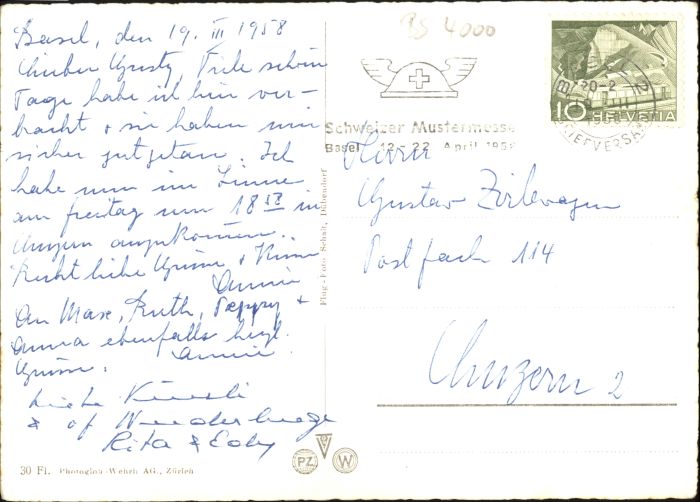 Basel, den 19. III 1958
Lieber Gusty, Viele schöne
Tage habe ich hier ver-
bracht & sie haben mir
sicher gutgetan. Ich
habe nun im Sinne
am Freitag um 18 57 in
Luzern anzukommen.
Recht liebe Grüsse & Küsse
Annie
An Max, Ruth, Peppy &
Anna ebenfalls herzl.
Grüsse. Annie.
&
Rita & Edy
30 Fl. Photoglob-Wehrli AG., Zürich
Flug-Foto Schait, Dübendorf
PZ W
BS 4000
Schweizer Mustermesse
Basel 12-22 April 1958
10 HELVETIA
BRIEFVERSAND
Herrn
Gustav Zirlewagen
Postfach 114
Luzern 2